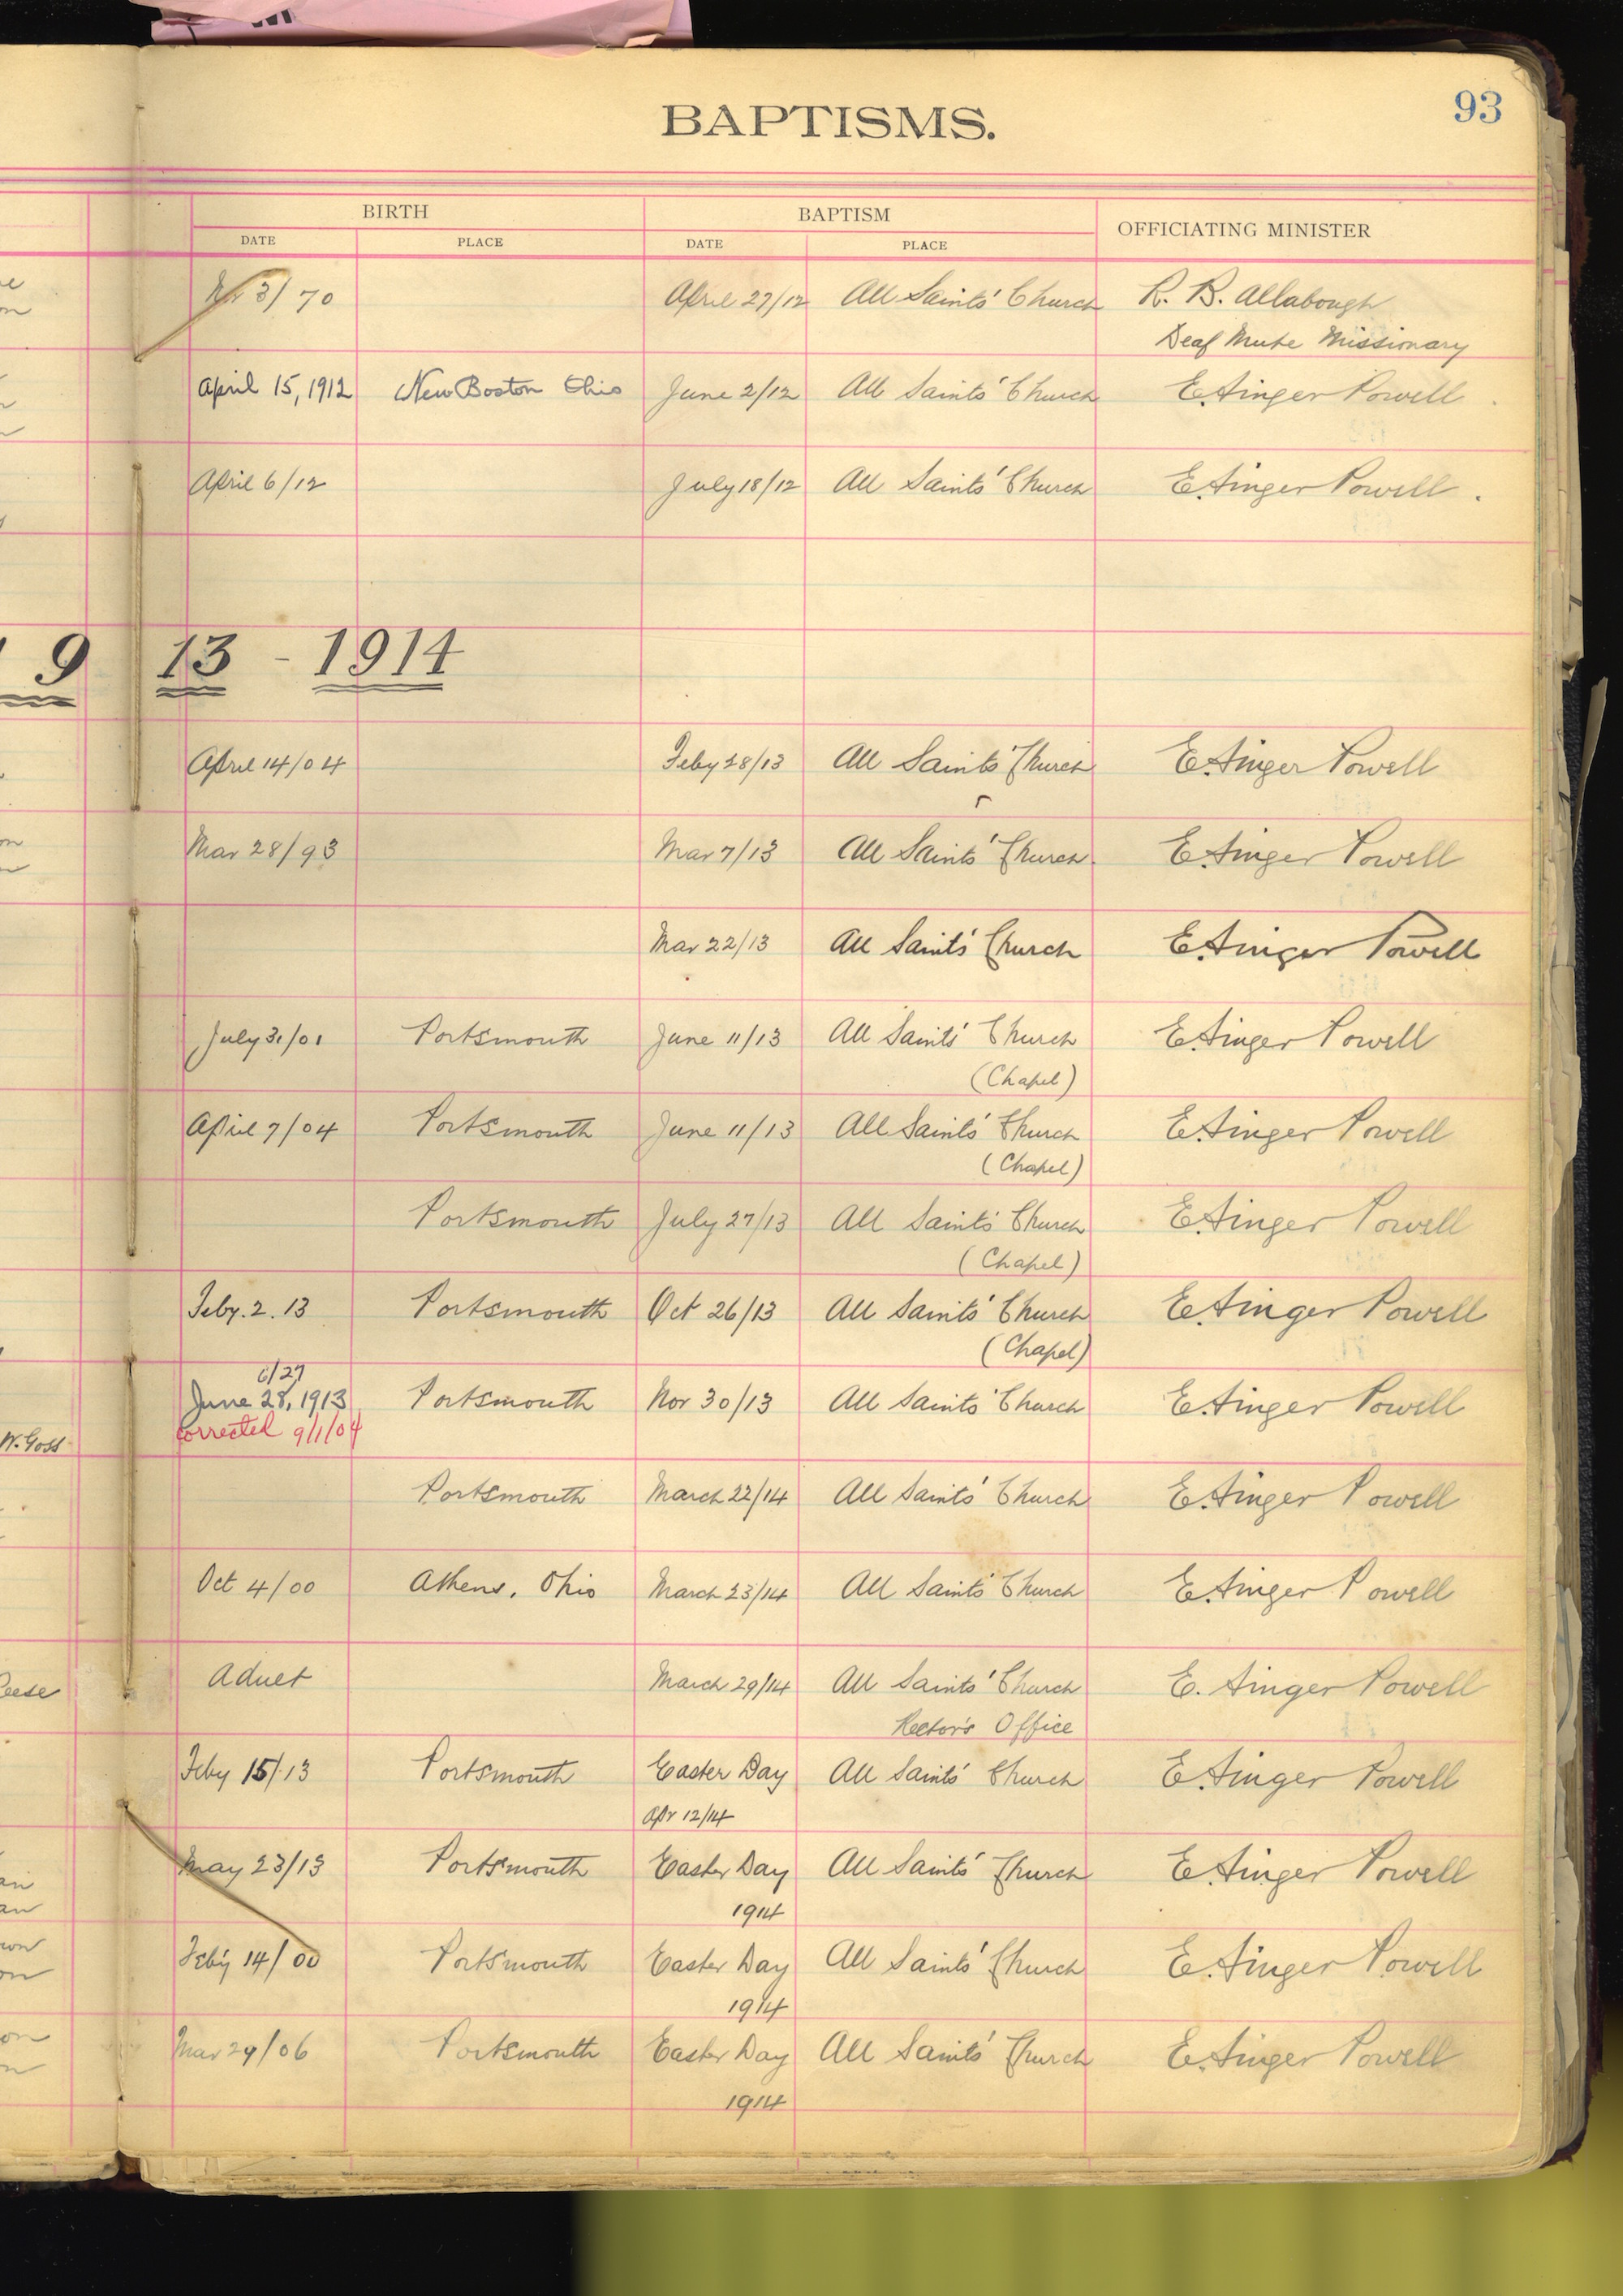 BAPTISMS.
93
BIRTH
BAPTISM
OFFICIATING MINISTER
DATE
PLACE
DATE
PLACE
3/70 April 27/12 All Saints' Church R. B. Allabough
Deaf Mute Missionary
April 15, 1912 New Boston Ohio June 2/12 All Saints' Church E. Ainger Powell
April 6/12 July 18/12 All Saints' Church E. Ainger Powell.
1913 - 1914
April 14/04 Feby 28/13 All Saints' Church E. Ainger Powell
Mar 28/93 Mar 7/13 All Saints' Church E. Ainger Powell
Mar 22/13 All Saints' Church E. Ainger Powell
July 31/01 Portsmouth June 11/13 All Saints' Church E. Ainger Powell
(Chapel)
April 7/04 Portsmouth June 11/13 All Saints' Church E. Ainger Powell
(Chapel)
Portsmouth July 27/13 All Saints' Church E. Ainger Powell
(Chapel)
Feby. 2. 13 Portsmouth Oct 26/13 All Saints' Church E. Ainger Powell
(Chapel)
6/27
June 28, 1913 Portsmouth Nov 30/13 All Saints' Church E. Ainger Powell
Corrected 9/1/04
W. Goss
Portsmouth March 22/14 All Saints' Church E. Ainger Powell
Oct 4/00 Athens, Ohio March 23/14 All Saints' Church E. Ainger Powell
Adult March 29/14 All Saints' Church E. Ainger Powell
Rector's Office
Feby 15/13 Portsmouth Easter Day All Saints' Church E. Ainger Powell
Apr 12/14
May 23/13 Portsmouth Easter Day All Saints' Church E. Ainger Powell
1914
Feby 14/00 Portsmouth Easter Day All Saints' Church E. Ainger Powell
1914
Mar 29/06 Portsmouth Easter Day All Saints' Church E. Ainger Powell
1914